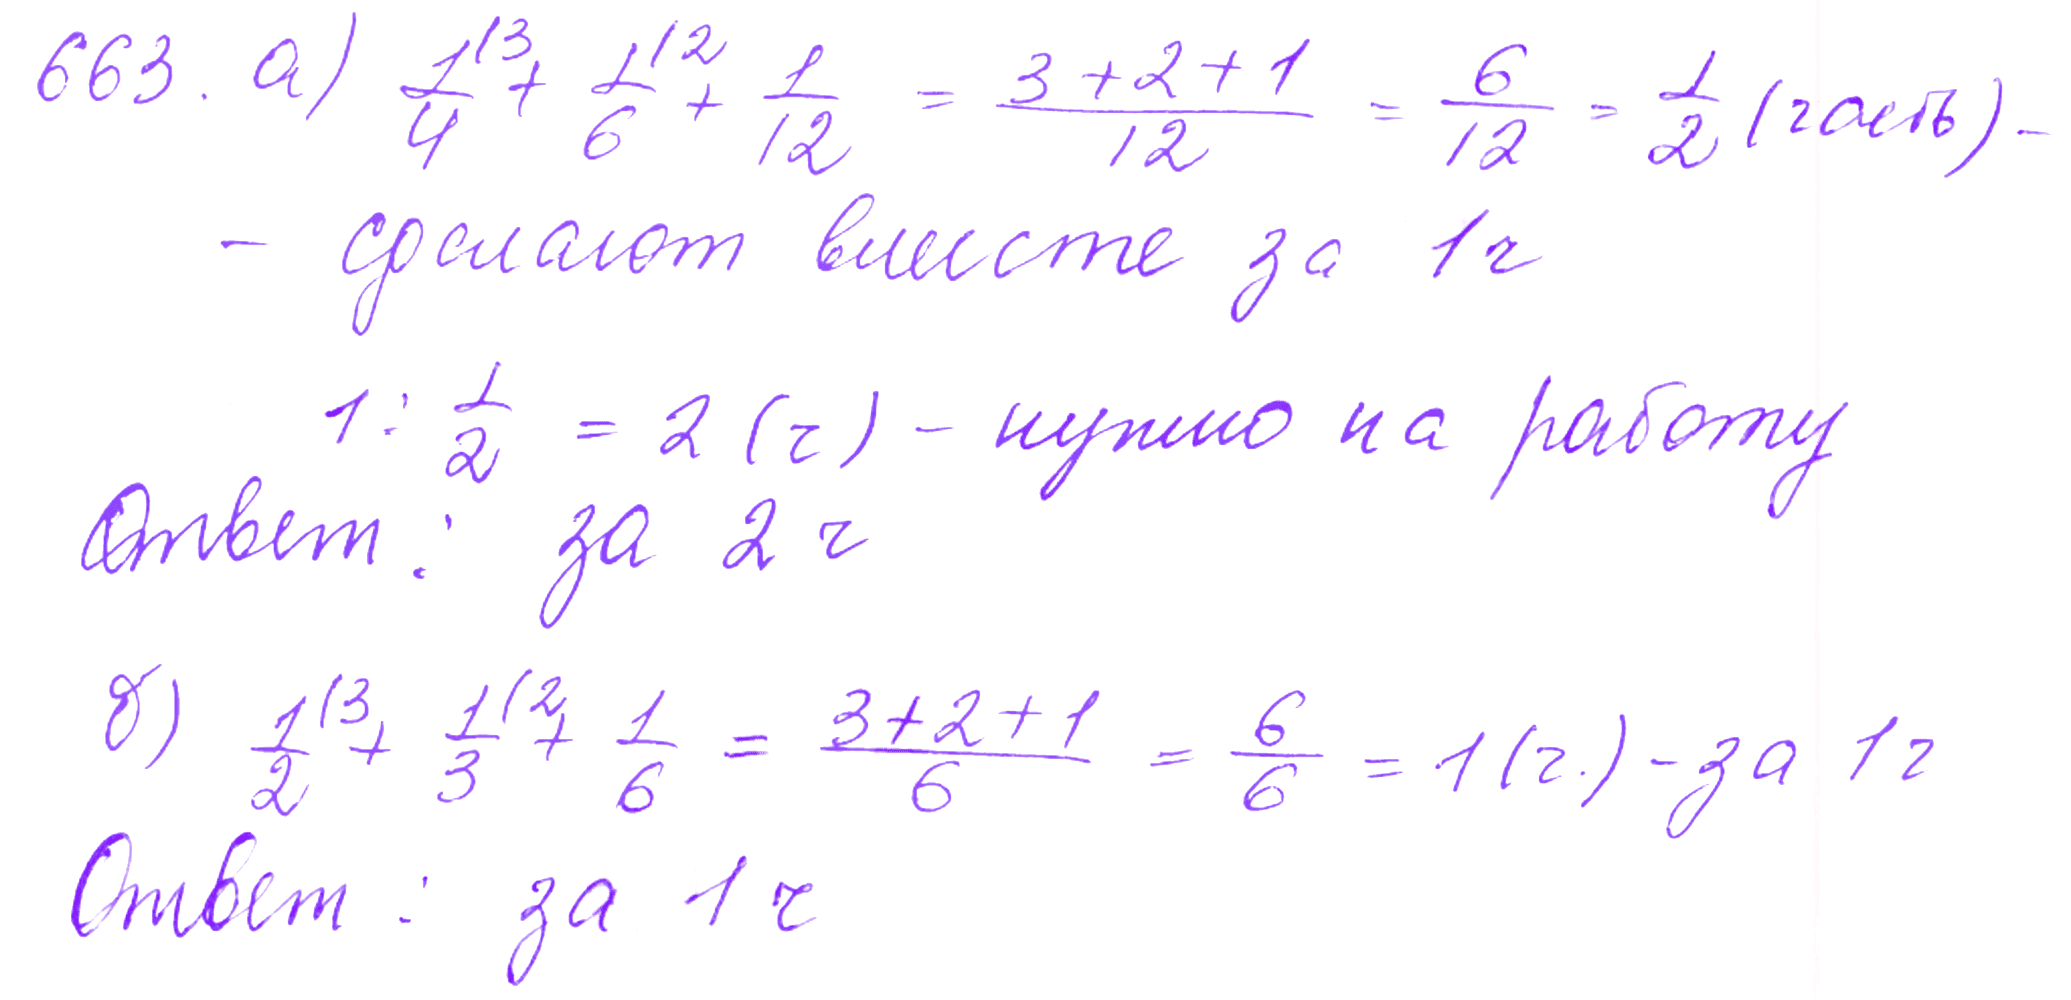 663. а) 1/4^(3 + 1/6^(2 + 1/12 = (3+2+1)/12 = 6/12 = 1/2 (часть) -
- сделают вместе за 1ч
1 : 1/2 = 2 (ч) - нужно на работу
Ответ: за 2 ч
б) 1/2^(3 + 1/3^(2 + 1/6 = (3+2+1)/6 = 6/6 = 1 (ч.) - за 1ч
Ответ: за 1 ч